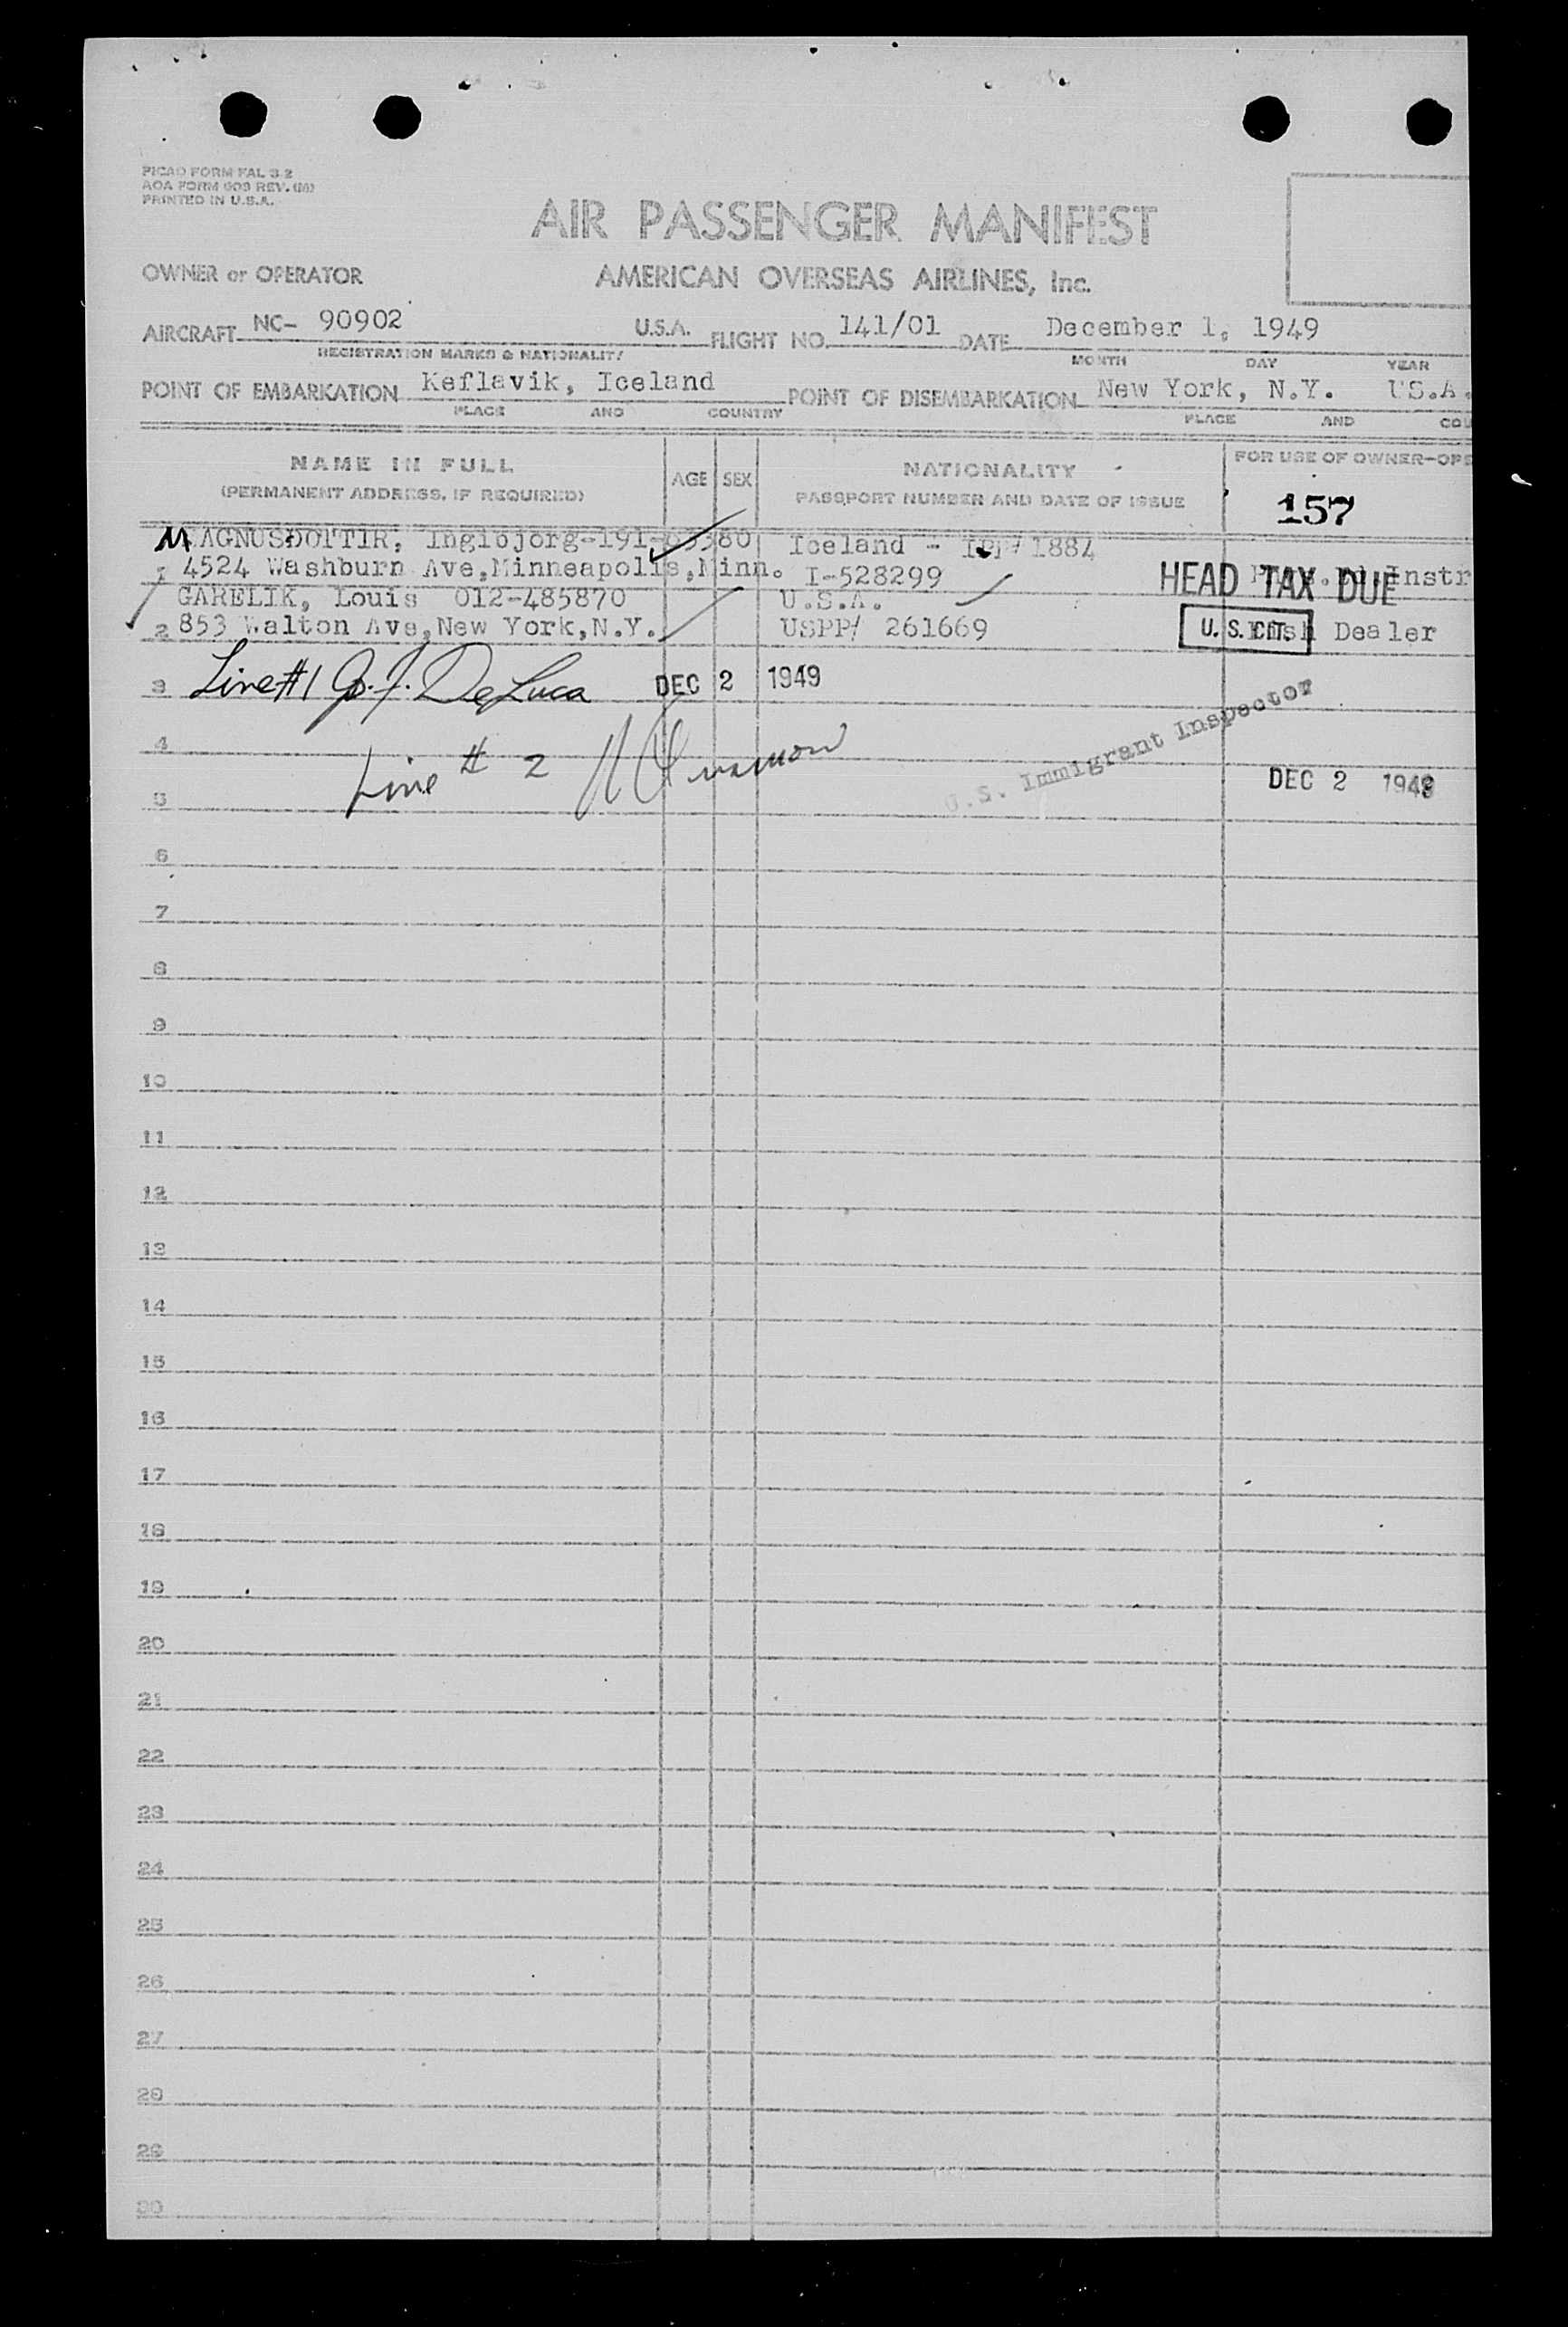 PICAO FORM FAL 3-2
AOA FORM 609 REV.
PRINTED IN U.S.A.
AIR PASSENGER MANIFEST
OWNER or OPERATOR AMERICAN OVERSEAS AIRLINES, Inc.
AIRCRAFT NC- 90902 U.S.A. FLIGHT NO. 141/01 DATE December 1, 1949
REGISTRATION MARKS & NATIONALITY MONTH DAY YEAR
POINT OF EMBARKATION Keflavik, Iceland POINT OF DISEMBARKATION New York, N.Y. US.A.
PLACE AND COUNTRY PLACE AND COU
NAME IN FULL AGE SEX NATIONALITY FOR USE OF OWNER-OPE
(PERMANENT ADDRESS, IF REQUIRED) PASSPORT NUMBER AND DATE OF ISSUE 157
MAGNUSDOTTIR, Ingibjorg-191-63380 Iceland - 1884
1 4524 Washburn Ave,Minneapolis,Minn. I-528299 HEAD TAX DUE Instr
GARELIK, Louis 012-485870 U.S.A.
2 853 Walton Ave,New York,N.Y. USPP/ 261669 U. S. CIT. Fish Dealer
3 Line #1 DeLuca DEC 2 1949
4 Line # 2 U.S. Immigrant Inspector
5 DEC 2 1949
6
7
8
9
10
11
12
13
14
15
16
17
18
19
20
21
22
23
24
25
26
27
28
29
30